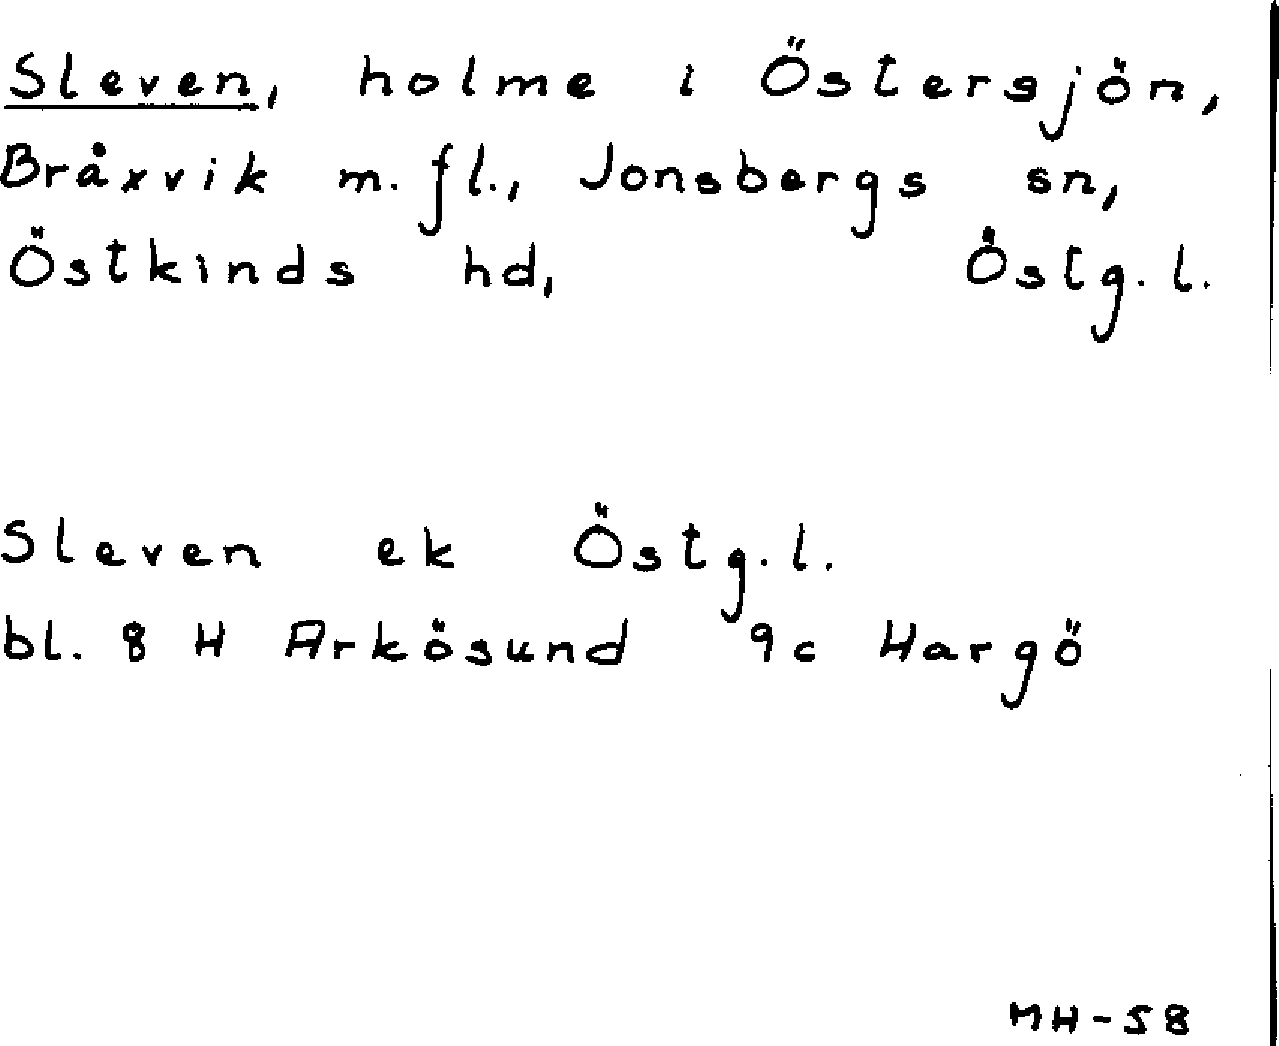 Sleven, holme i Östersjön,
Bråxvik m.fl., Jonsbergs sn,
Östkinds hd, Östg.l.
Sleven ek Östg.l.
bl. 8 H Arkösund 9c Hargö
MH-58